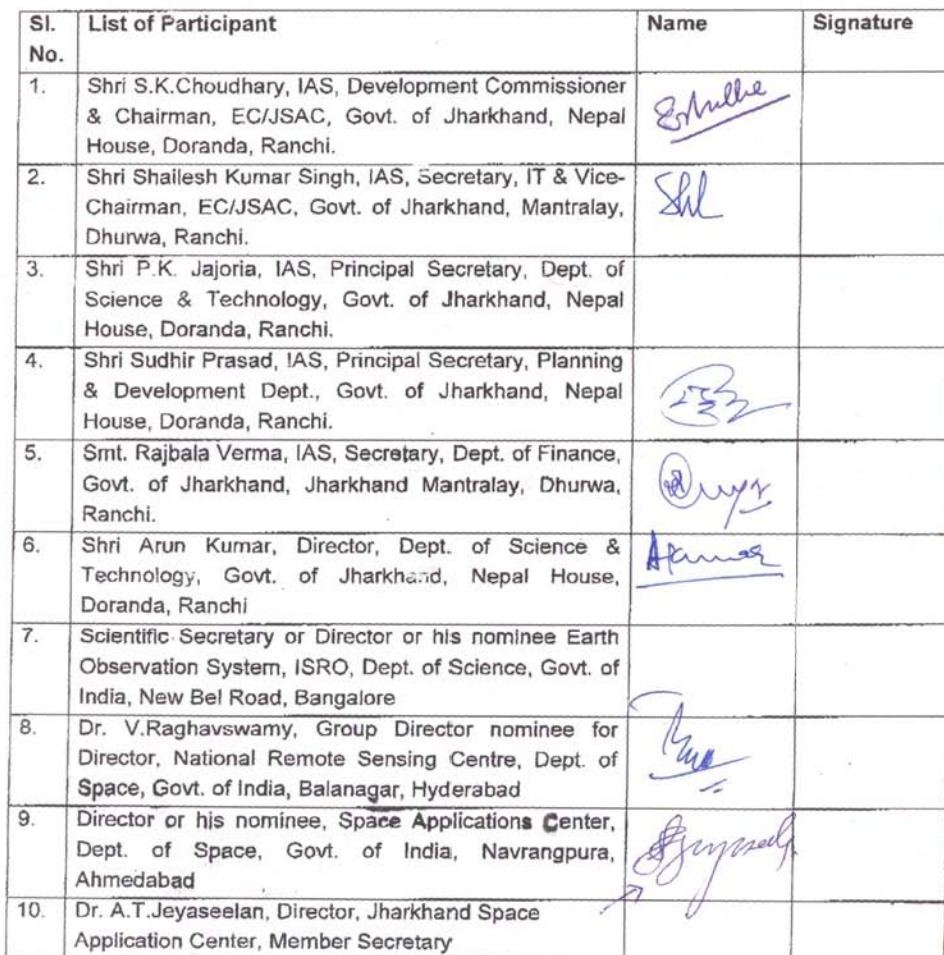 Sl. No. List of Participant Name Signature
1. Shri S.K.Choudhary, IAS, Development Commissioner
& Chairman, EC/JSAC, Govt. of Jharkhand, Nepal
House, Doranda, Ranchi.
2. Shri Shailesh Kumar Singh, IAS, Secretary, IT & Vice-
Chairman, EC/JSAC, Govt. of Jharkhand, Mantralay,
Dhurwa, Ranchi.
3. Shri P.K. Jajoria, IAS, Principal Secretary, Dept. of
Science & Technology, Govt. of Jharkhand, Nepal
House, Doranda, Ranchi.
4. Shri Sudhir Prasad, IAS, Principal Secretary, Planning
& Development Dept., Govt. of Jharkhand, Nepal
House, Doranda, Ranchi.
5. Smt. Rajbala Verma, IAS, Secretary, Dept. of Finance,
Govt. of Jharkhand, Jharkhand Mantralay, Dhurwa,
Ranchi.
6. Shri Arun Kumar, Director, Dept. of Science &
Technology, Govt. of Jharkhand, Nepal House,
Doranda, Ranchi
7. Scientific Secretary or Director or his nominee Earth
Observation System, ISRO, Dept. of Science, Govt. of
India, New Bel Road, Bangalore
8. Dr. V.Raghavswamy, Group Director nominee for
Director, National Remote Sensing Centre, Dept. of
Space, Govt. of India, Balanagar, Hyderabad
9. Director or his nominee, Space Applications Center,
Dept. of Space, Govt. of India, Navrangpura,
Ahmedabad
10. Dr. A.T.Jeyaseelan, Director, Jharkhand Space
Application Center, Member Secretary